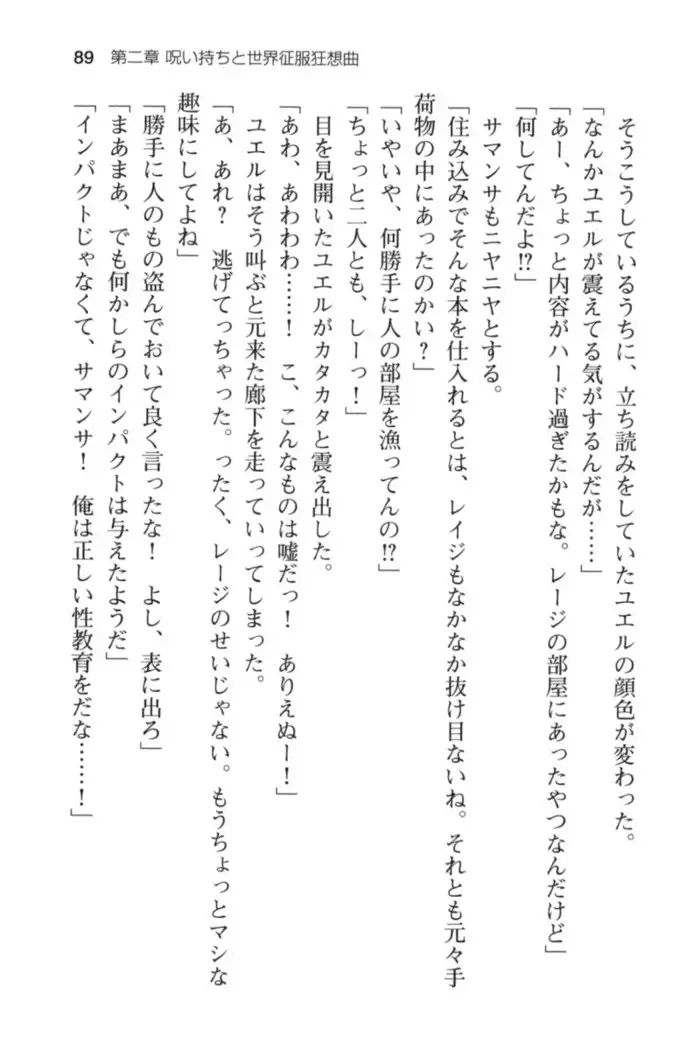 89 第二章 呪い持ちと世界征服狂想曲
そうこうしているうちに、立ち読みをしていたユエルの顔色が変わった。
「なんかユエルが震えてる気がするんだが……」
「あー、ちょっと内容がハード過ぎたかもな。レージの部屋にあったやつなんだけど」
「何してんだよ!?」
サマンサもニヤニヤとする。
「住み込みでそんな本を仕入れるとは、レイジもなかなか抜け目ないね。それとも元々手
荷物の中にあったのかい？」
「いやいや、何勝手に人の部屋を漁ってんの!?」
「ちょっと二人とも、しーっ！」
目を見開いたユエルがカタカタと震え出した。
「あわ、あわわわ……！　こ、こんなものは嘘だっ！　ありえぬー！」
ユエルはそう叫ぶと元来た廊下を走っていってしまった。
「あ、あれ？　逃げてっちゃった。ったく、レージのせいじゃない。もうちょっとマシな
趣味にしてよね」
「勝手に人のもの盗んでおいて良く言ったな！　よし、表に出ろ」
「まあまあ、でも何かしらのインパクトは与えたようだ」
「インパクトじゃなくて、サマンサ！　俺は正しい性教育をだな……！」